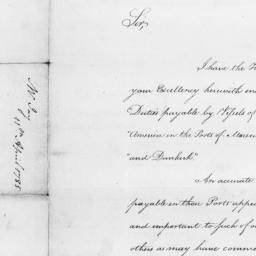 Sir,
I have the H
your Excellency herewith en
Duties payable by Vessels of
"America in the Ports of Marse
"and Dunkirk."
An accurate
payable in those Ports appe
and important to such of ou
others as may have comme
Mr Jay
11th April 1785